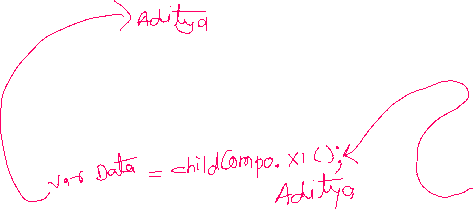 Aditya
Var Data = childCompo.x1();
Aditya